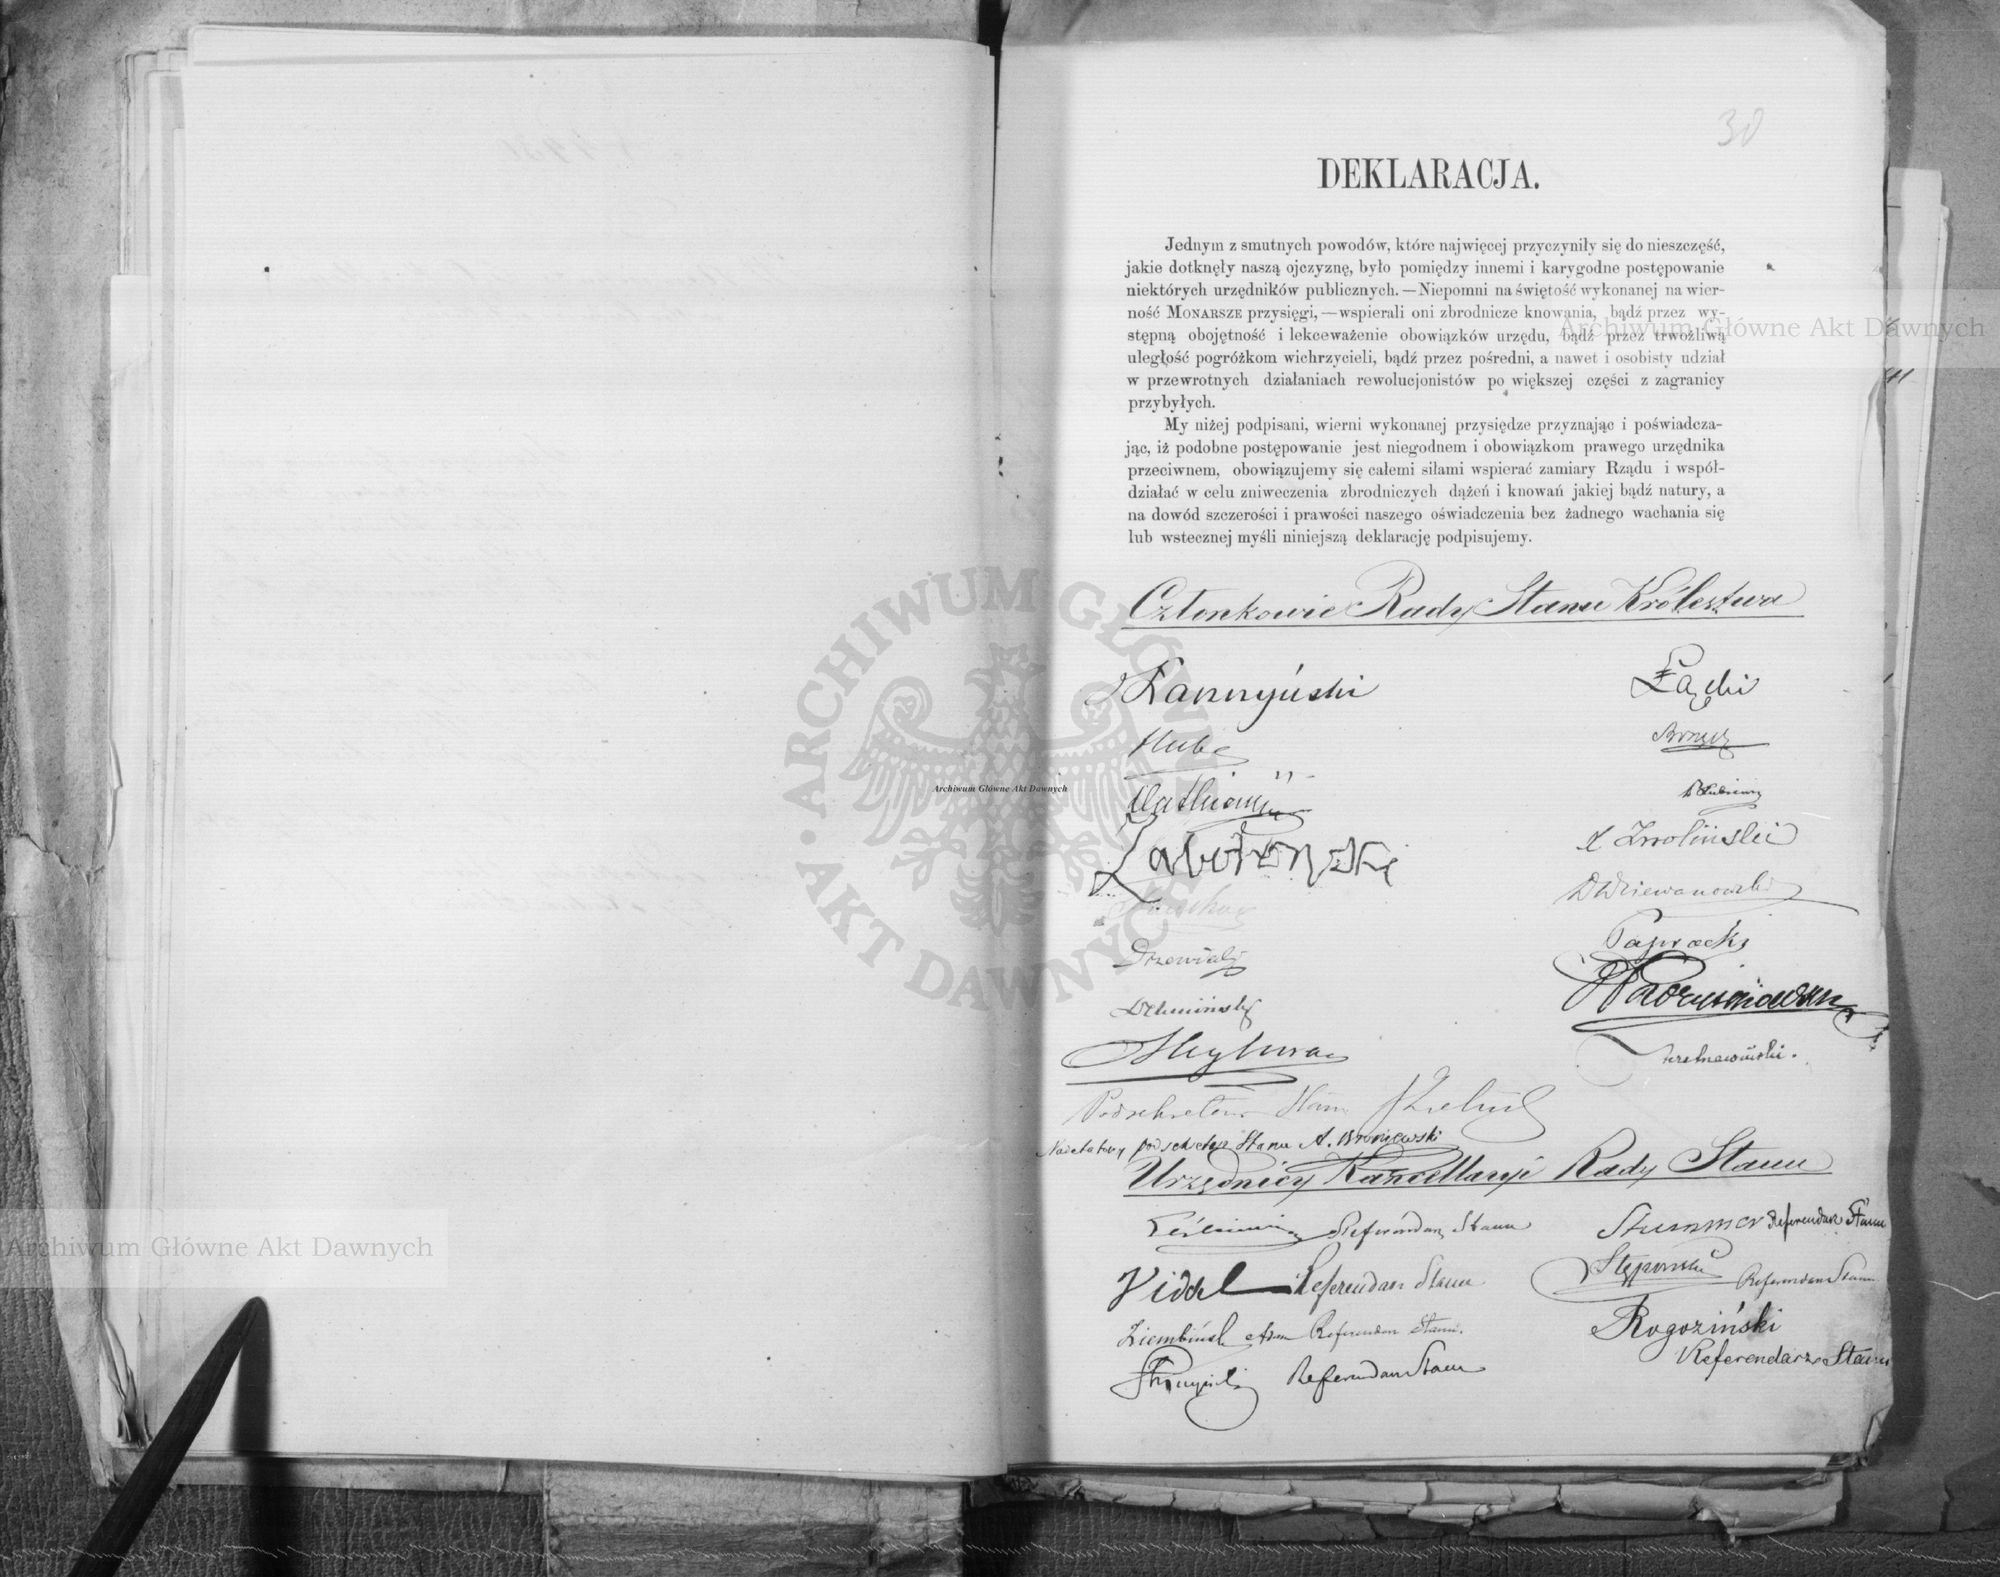 30
DEKLARACJA.
Jednym z smutnych powodów, które najwięcej przyczyniły się do nieszczęść,
jakie dotknęły naszą ojczyznę, było pomiędzy innemi i karygodne postępowanie
niektórych urzędników publicznych. — Niepomni na świętość wykonanej na wier-
ność MONARSZE przysięgi, — wspierali oni zbrodnicze knowania, bądź przez wy-
stępną obojętność i lekceważenie obowiązków urzędu, bądź przez trwożliwą
uległość pogróżkom wichrzycieli, bądź przez pośredni, a nawet i osobisty udział
w przewrotnych działaniach rewolucjonistów po większej części z zagranicy
przybyłych.
My niżej podpisani, wierni wykonanej przysiędze przyznając i poświadcza-
jąc, iż podobne postępowanie jest niegodnem i obowiązkom prawego urzędnika
przeciwnem, obowiązujemy się całemi siłami wspierać zamiary Rządu i współ-
działać w celu zniweczenia zbrodniczych dążeń i knowań jakiej bądź natury, a
na dowód szczerości i prawości naszego oświadczenia bez żadnego wachania się
lub wstecznej myśli niniejszą deklarację podpisujemy.
Członkowie Rady Stanu Królestwa
Łącki
Hube
Zwoliński
Dziewanowski
Paprocki
Drzewiecki
Podsekretarz Stanu
Nadetatowy podsekretarz Stanu A. Broniewski
Urzędnicy Kancellaryi Rady Stanu
Referendarz Stanu Stummer Referendarz Stanu
Vidal Referendarz Stanu Stępowski Referendarz Stanu
Ziembiński Referendarz Stanu. Rogoziński
Referendarz Stanu
Referendarz Stanu
Archiwum Główne Akt Dawnych
Archiwum Główne Akt Dawnych
Archiwum Główne Akt Dawnych
ARCHIWUM GŁÓWNE AKT DAWNYCH